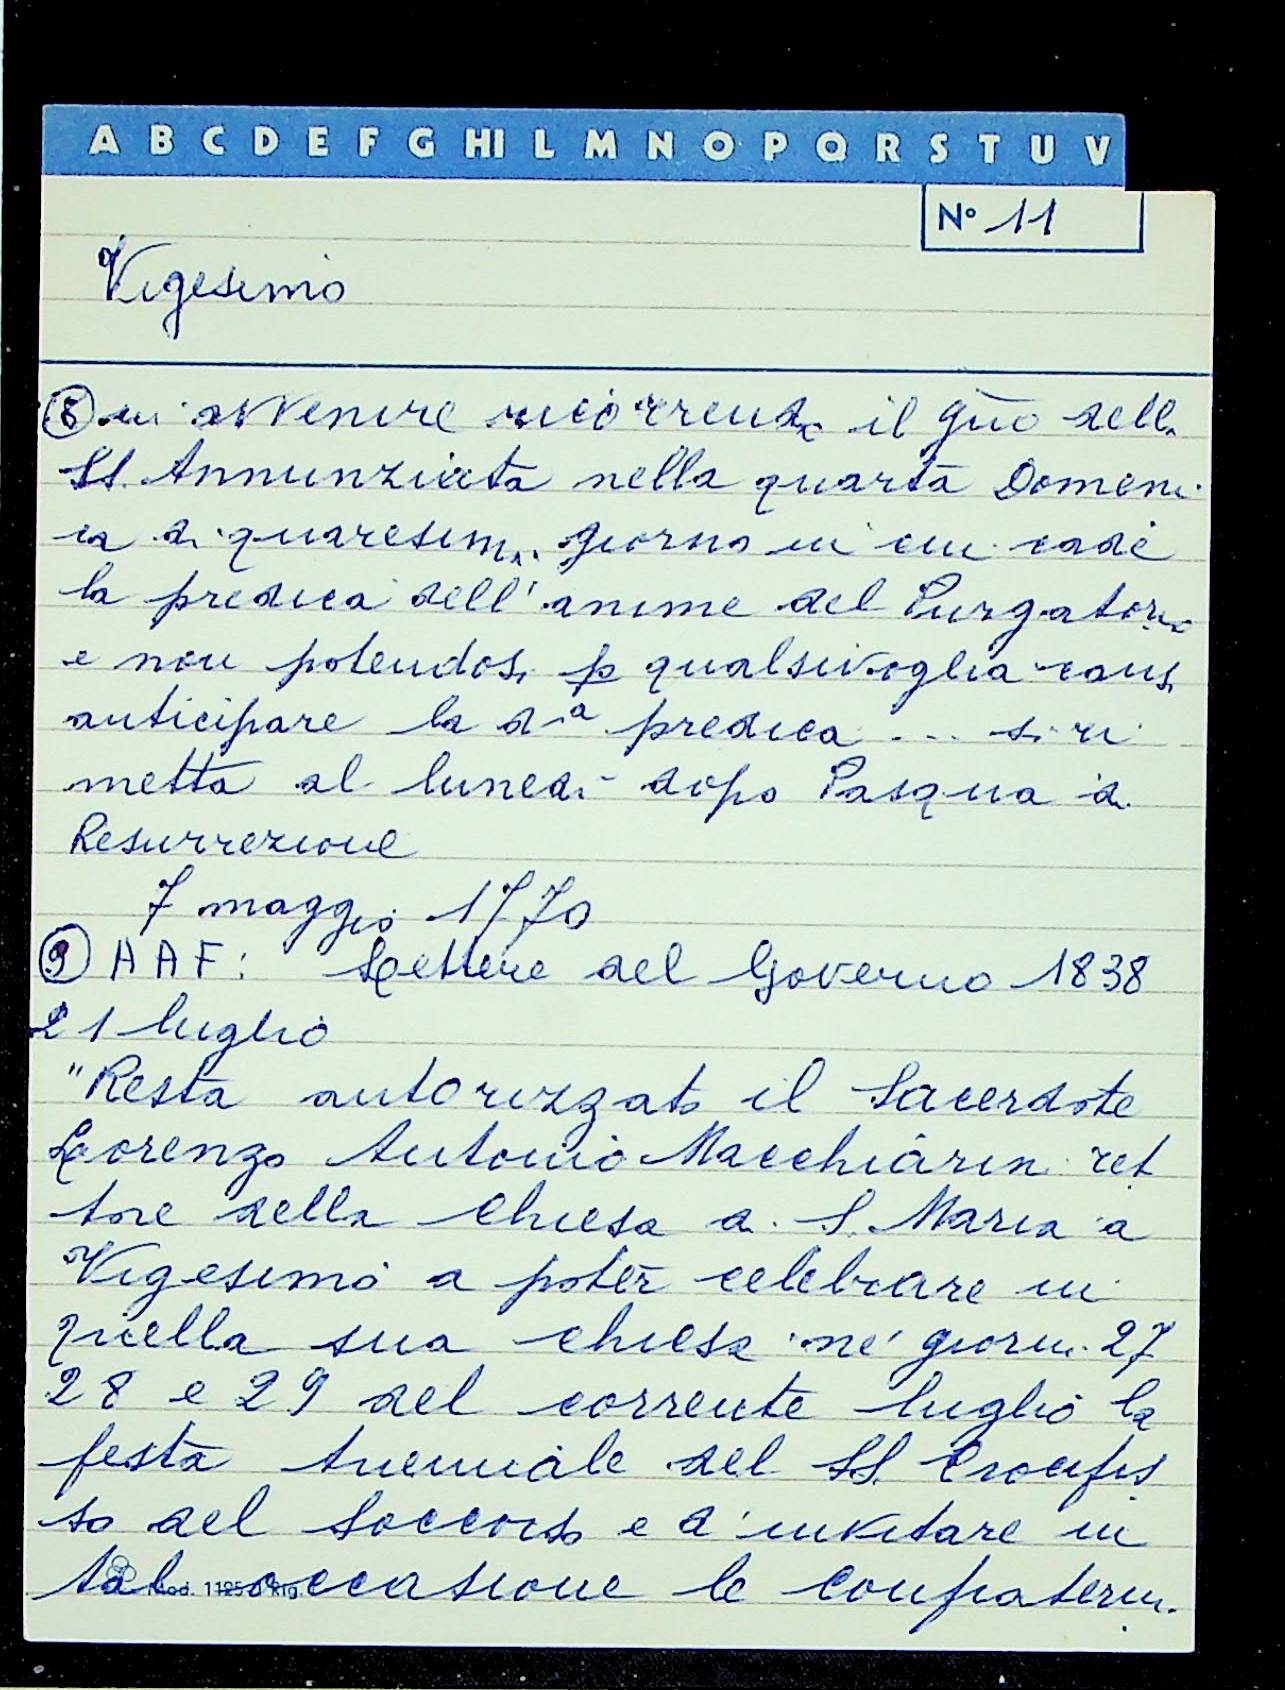 A B C D E F G HI L M N O P Q R S T U V
N° 11
Vigesimo
⑧ in avvenire ricorrendo il gño della
SS. Annunziata nella quarta Domeni
ca di quaresima giorno in cui cade
la predica dell'anime del Purgatorio
e non potendosi p qualsivoglia causa
anticipare la d.a predica ... si ri
metta al lunedì dopo Pasqua di
Resurrezione
7 maggio 1770
⑨ AAF: Lettere del Governo 1838
21 luglio
"Resta autorizzato il Sacerdote
Lorenzo Antonio Macchiarini ret
tore della Chiesa di S. Maria a
Vigesimo a poter celebrare in
quella sua chiesa ne' giorni 27
28 e 29 del corrente luglio la
festa triennale del SS. Crocifis
so del Soccorso e d'invitare in
tal occasione le confraterni.
Mod. 1125 Rig